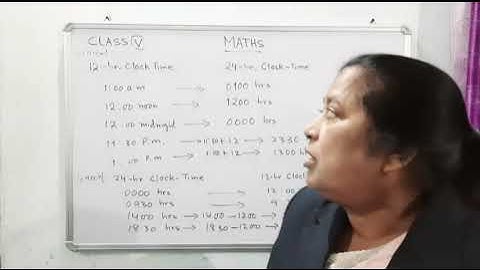 CLASS V MATHS
12-hr Clock Time 24-hr Clock-Time
1:00 a.m → 0100 hrs
12.00 noon → 1200 hrs
12.00 midnight → 0000 hrs
11.30 P.m. → → 2330
1.00 P.m → → 1300 hrs
24-hr Clock-Time 12-hr Clock
0000 hrs → 12.00
0930 hrs → 9
1400 hrs → 1400-1200 →
1830 hrs → 1830-1200 →